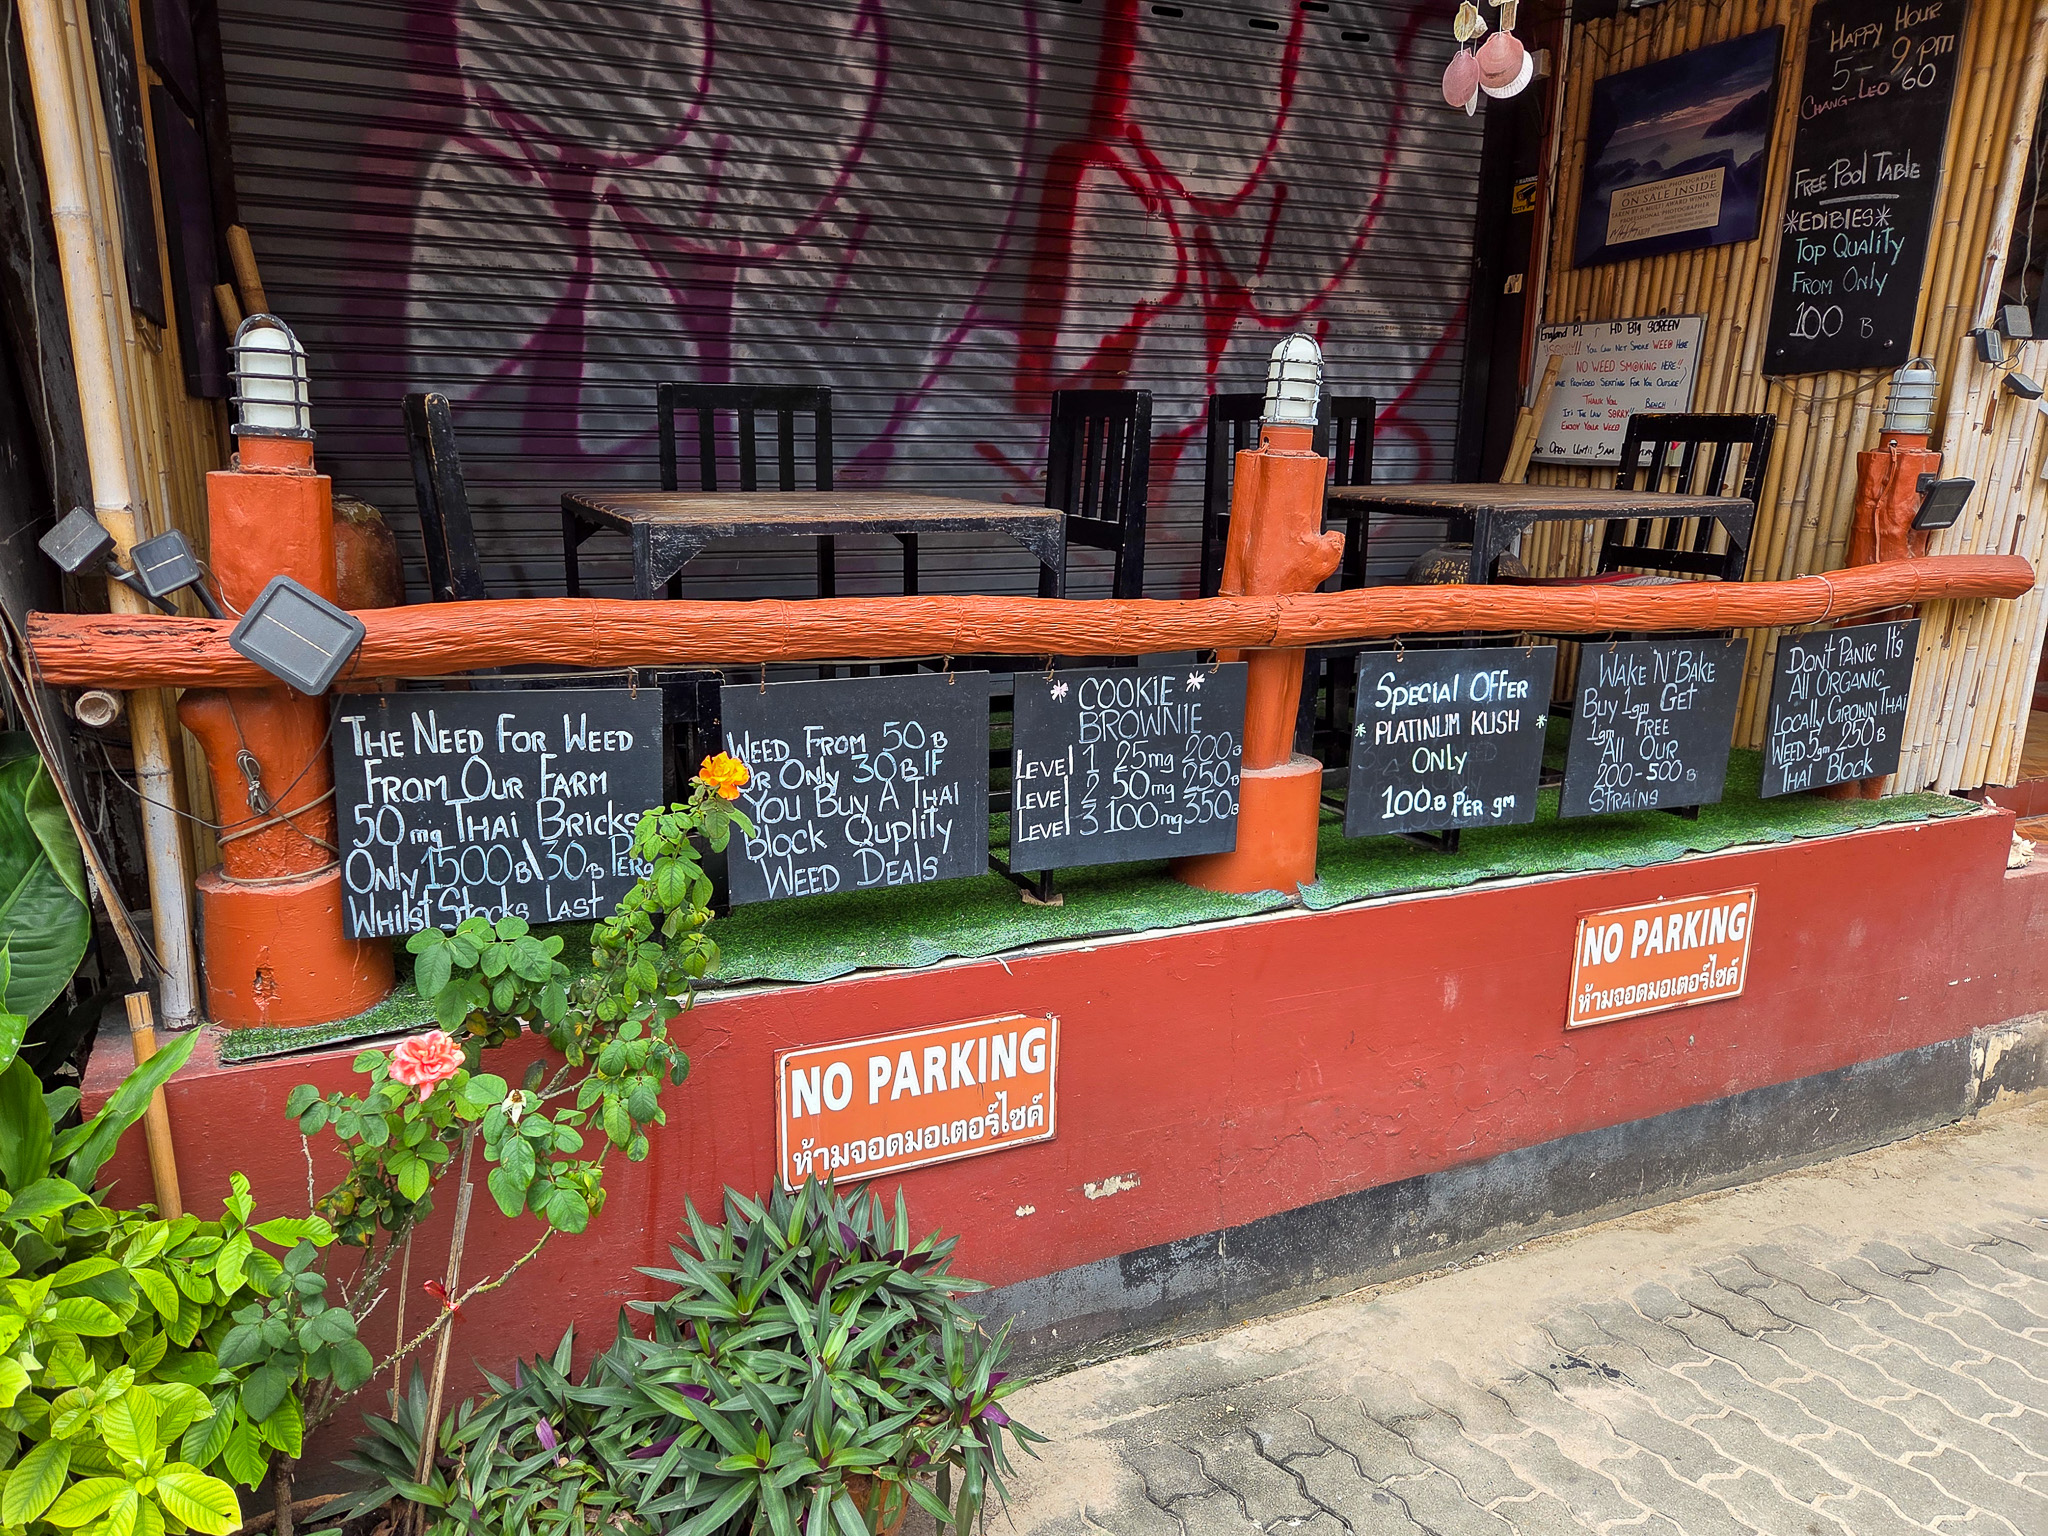 HAPPY HOUR
5 - 9 PM
CHANG-LEO 60
FREE POOL TABLE
*EDIBlES*
TOP QUALITY
FROM ONLY
100 B
PROFESSIONAL PHOTOGRAPHS
ON SALE INSIDE
TAKEN BY A MULTI AWARD WINNING
PROFESSIONAL PHOTOGRAPHER
England PL HD BIG SCREEN
YOU CAN NOT SMOKE WEED HERE
NO WEED SMOKING HERE!!
PROVIDED SEATING FOR YOU OUTSIDE!
THANK YOU BENCH
IT'S THE LAW SORRY!!
ENJOY YOUR WEED
OPEN UNTIL 5AM
THE NEED FOR WEED
FROM OUR FARM
50mg THAI BRICKS
ONLY 1500B\30B PERg
WHILST STOCKS LAST
WEED FROM 50 B
OR ONLY 30B IF
YOU BUY A THAI
BLOCK QUPLITY
WEED DEALS
* COOKIE *
BROWNIE
LEVEL 1 25mg 200B
LEVEL 2 50mg 250B
LEVEL 3 100mg 350B
SPECIAL OFFER
* PLATINUM KUSH *
ONLY
100.B PER gm
WAKE "N" BAKE
BUY 1gm GET
1gm FREE
All OUR
200-500 B
STRAINS
DON'T PANIC IT'S
All ORGANIC
LOCALLY GROWN THAI
WEED 5gm 250B
THAI BLOCK
NO PARKING
ห้ามจอดมอเตอร์ไซค์
NO PARKING
ห้ามจอดมอเตอร์ไซค์